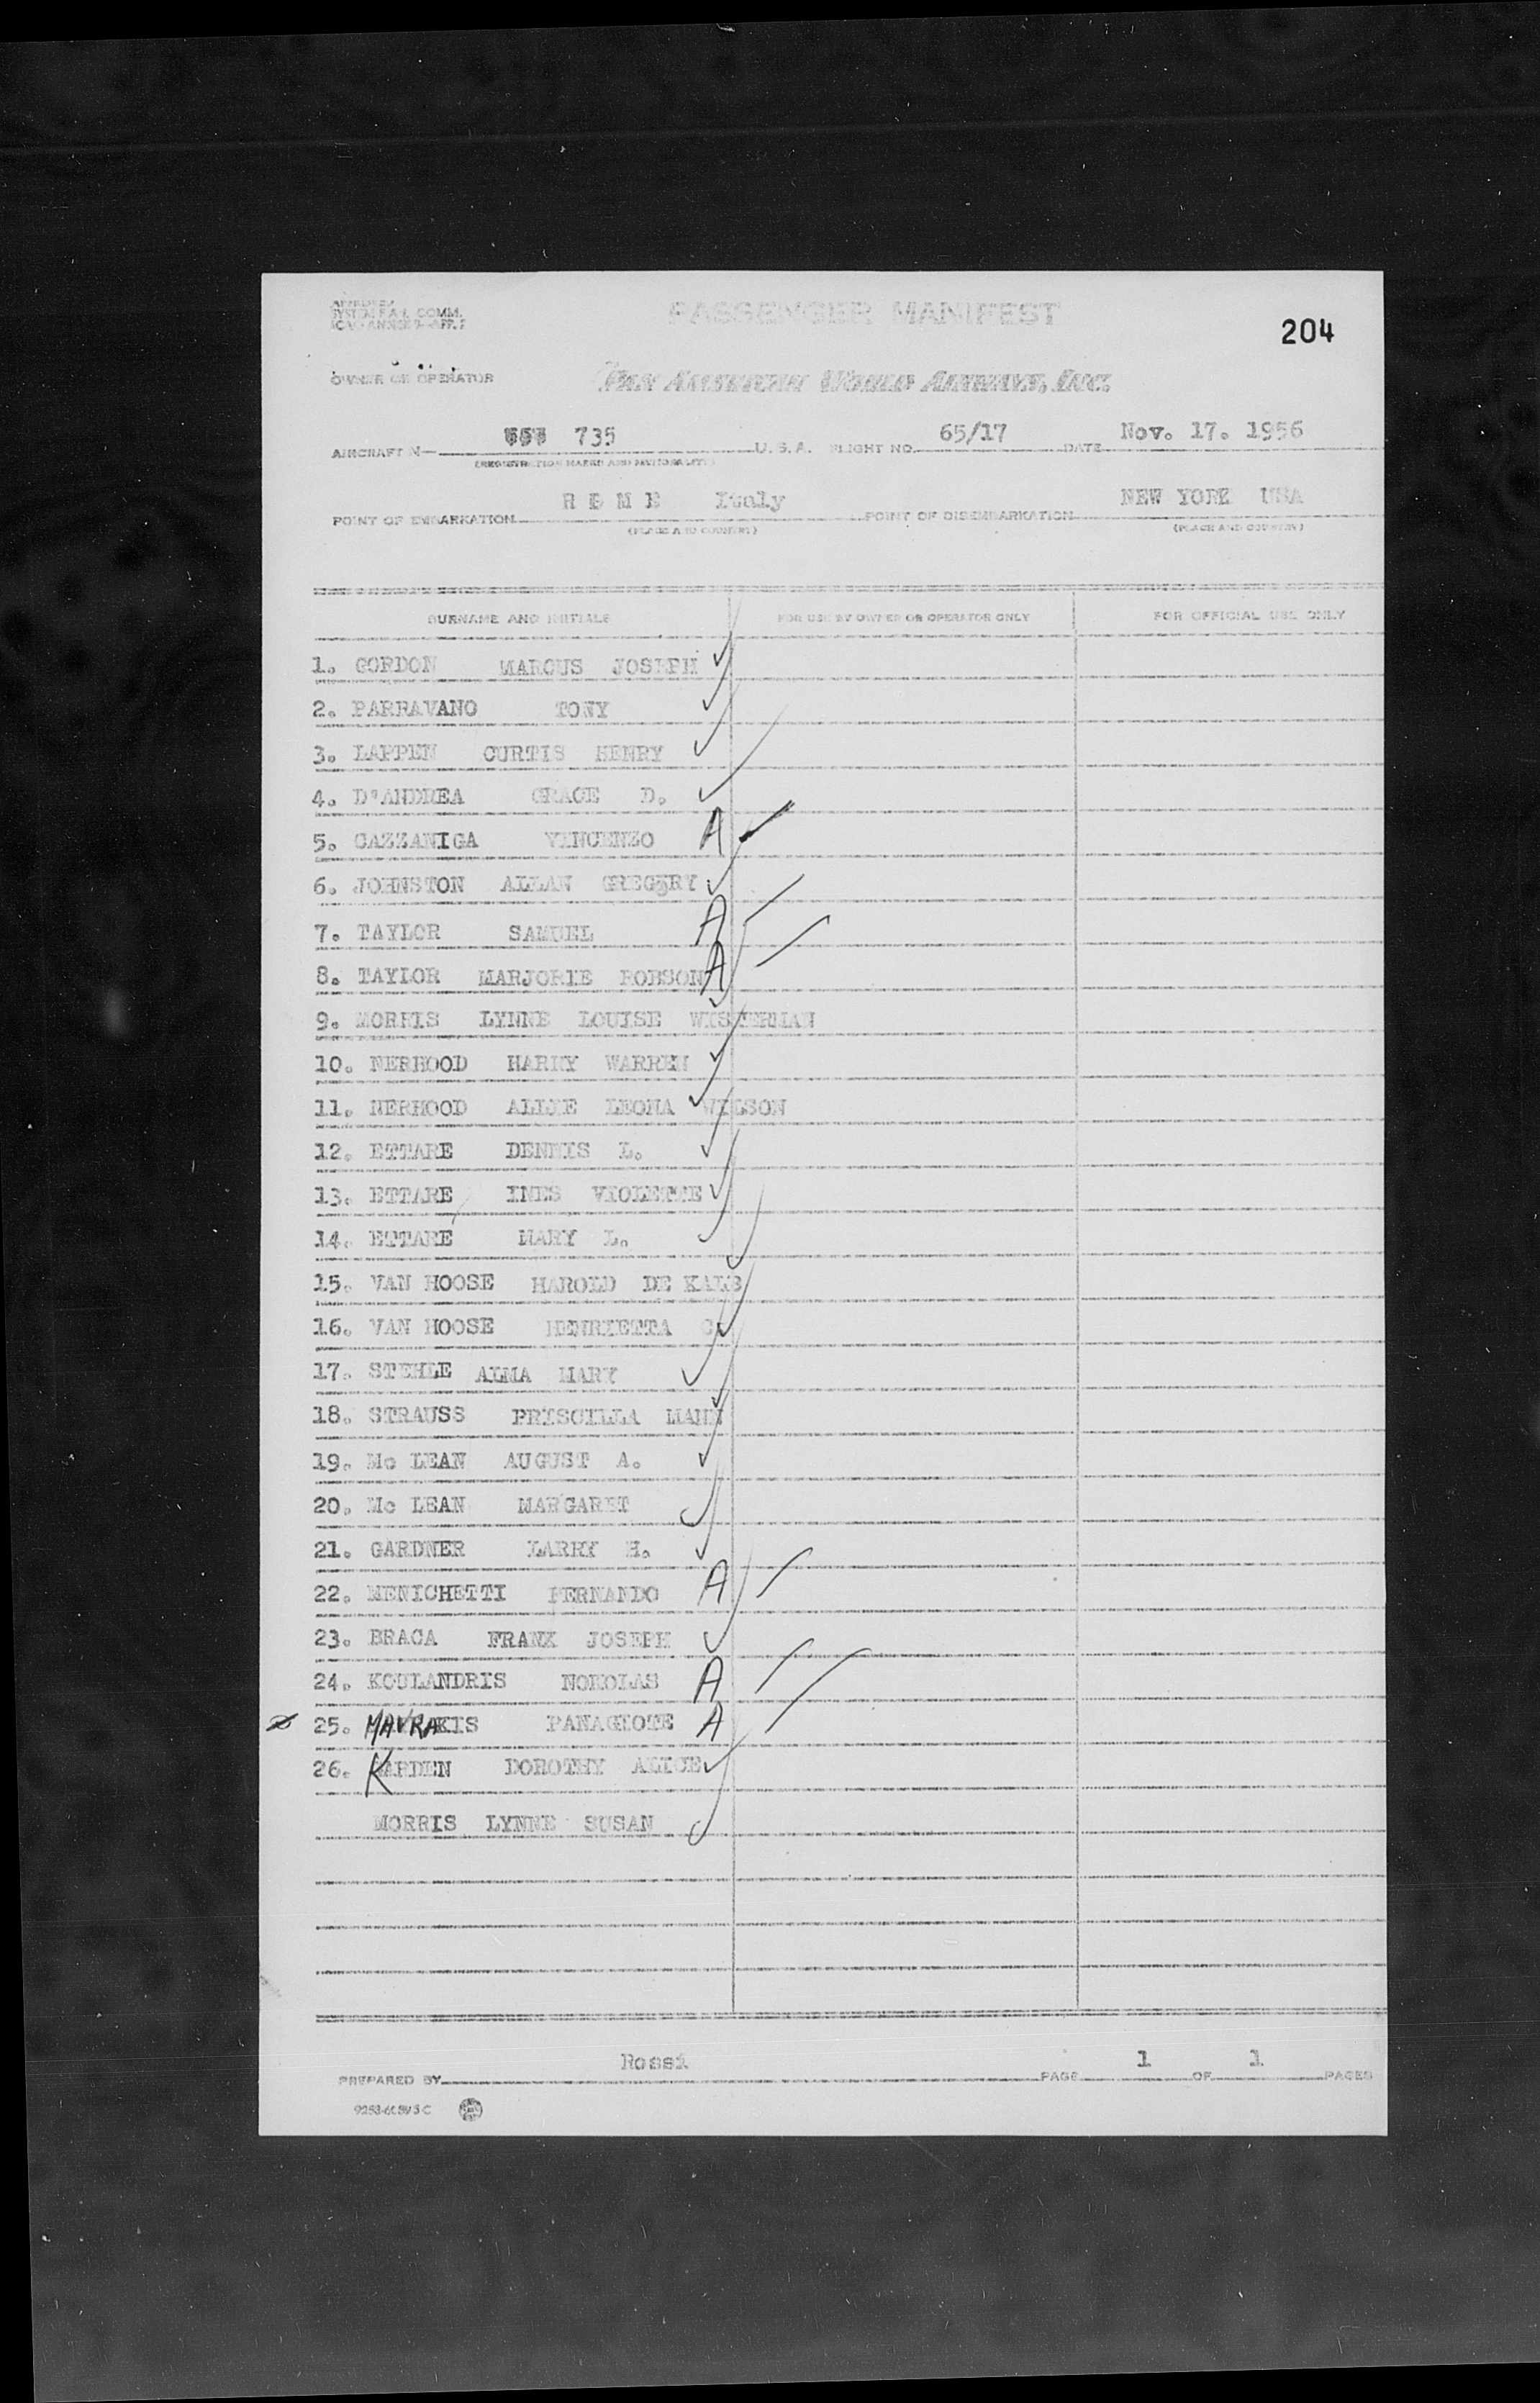 PASSENGER MANIFEST
204
OWNER OR OPERATOR PAN AMERICAN WORLD AIRWAYS, INC.
AIRCRAFT N— 735 U.S.A. FLIGHT NO. 65/17 DATE Nov. 17. 1956
(REGISTRATION MARKS AND NATIONALITY)
POINT OF EMBARKATION R O M E Italy POINT OF DISEMBARKATION NEW YORK USA
(PLACE AND COUNTRY) (PLACE AND COUNTRY)
SURNAME AND INITIALS FOR USE BY OWNER OR OPERATOR ONLY FOR OFFICIAL USE ONLY
1. GORDON MARCUS JOSEPH
2. PARRAVANO TONY
3. LAPPEN CURTIS HENRY
4. D'ANDREA GRACE D.
5. GAZZANIGA VINCENZO A
6. JOHNSTON ALLAN GREGORY
7. TAYLOR SAMUEL A
8. TAYLOR MARJORIE ROBSON A
9. MORRIS LYNNE LOUISE WISTERMAN
10. NERHOOD HARRY WARREN
11. NERHOOD ALLIE LEONA WILSON
12. ETTARE DENNIS L.
13. ETTARE INES VIOLETTE
14. ETTARE MARY L.
15. VAN HOOSE HAROLD DE KALB
16. VAN HOOSE HENRIETTA C.
17. STEHLE ALMA MARY
18. STRAUSS PRISCILLA MANN
19. Mc LEAN AUGUST A.
20. Mc LEAN MARGARET
21. GARDNER LARRY H.
22. MENICHETTI FERNANDO A
23. BRACA FRANK JOSEPH
24. KOULANDRIS NOKOLAS A
25. MAVRAKIS PANAGIOTE A
26. KARDEN DOROTHY ALICE
MORRIS LYNNE SUSAN
PREPARED BY Rossi PAGE 1 OF 1 PAGES